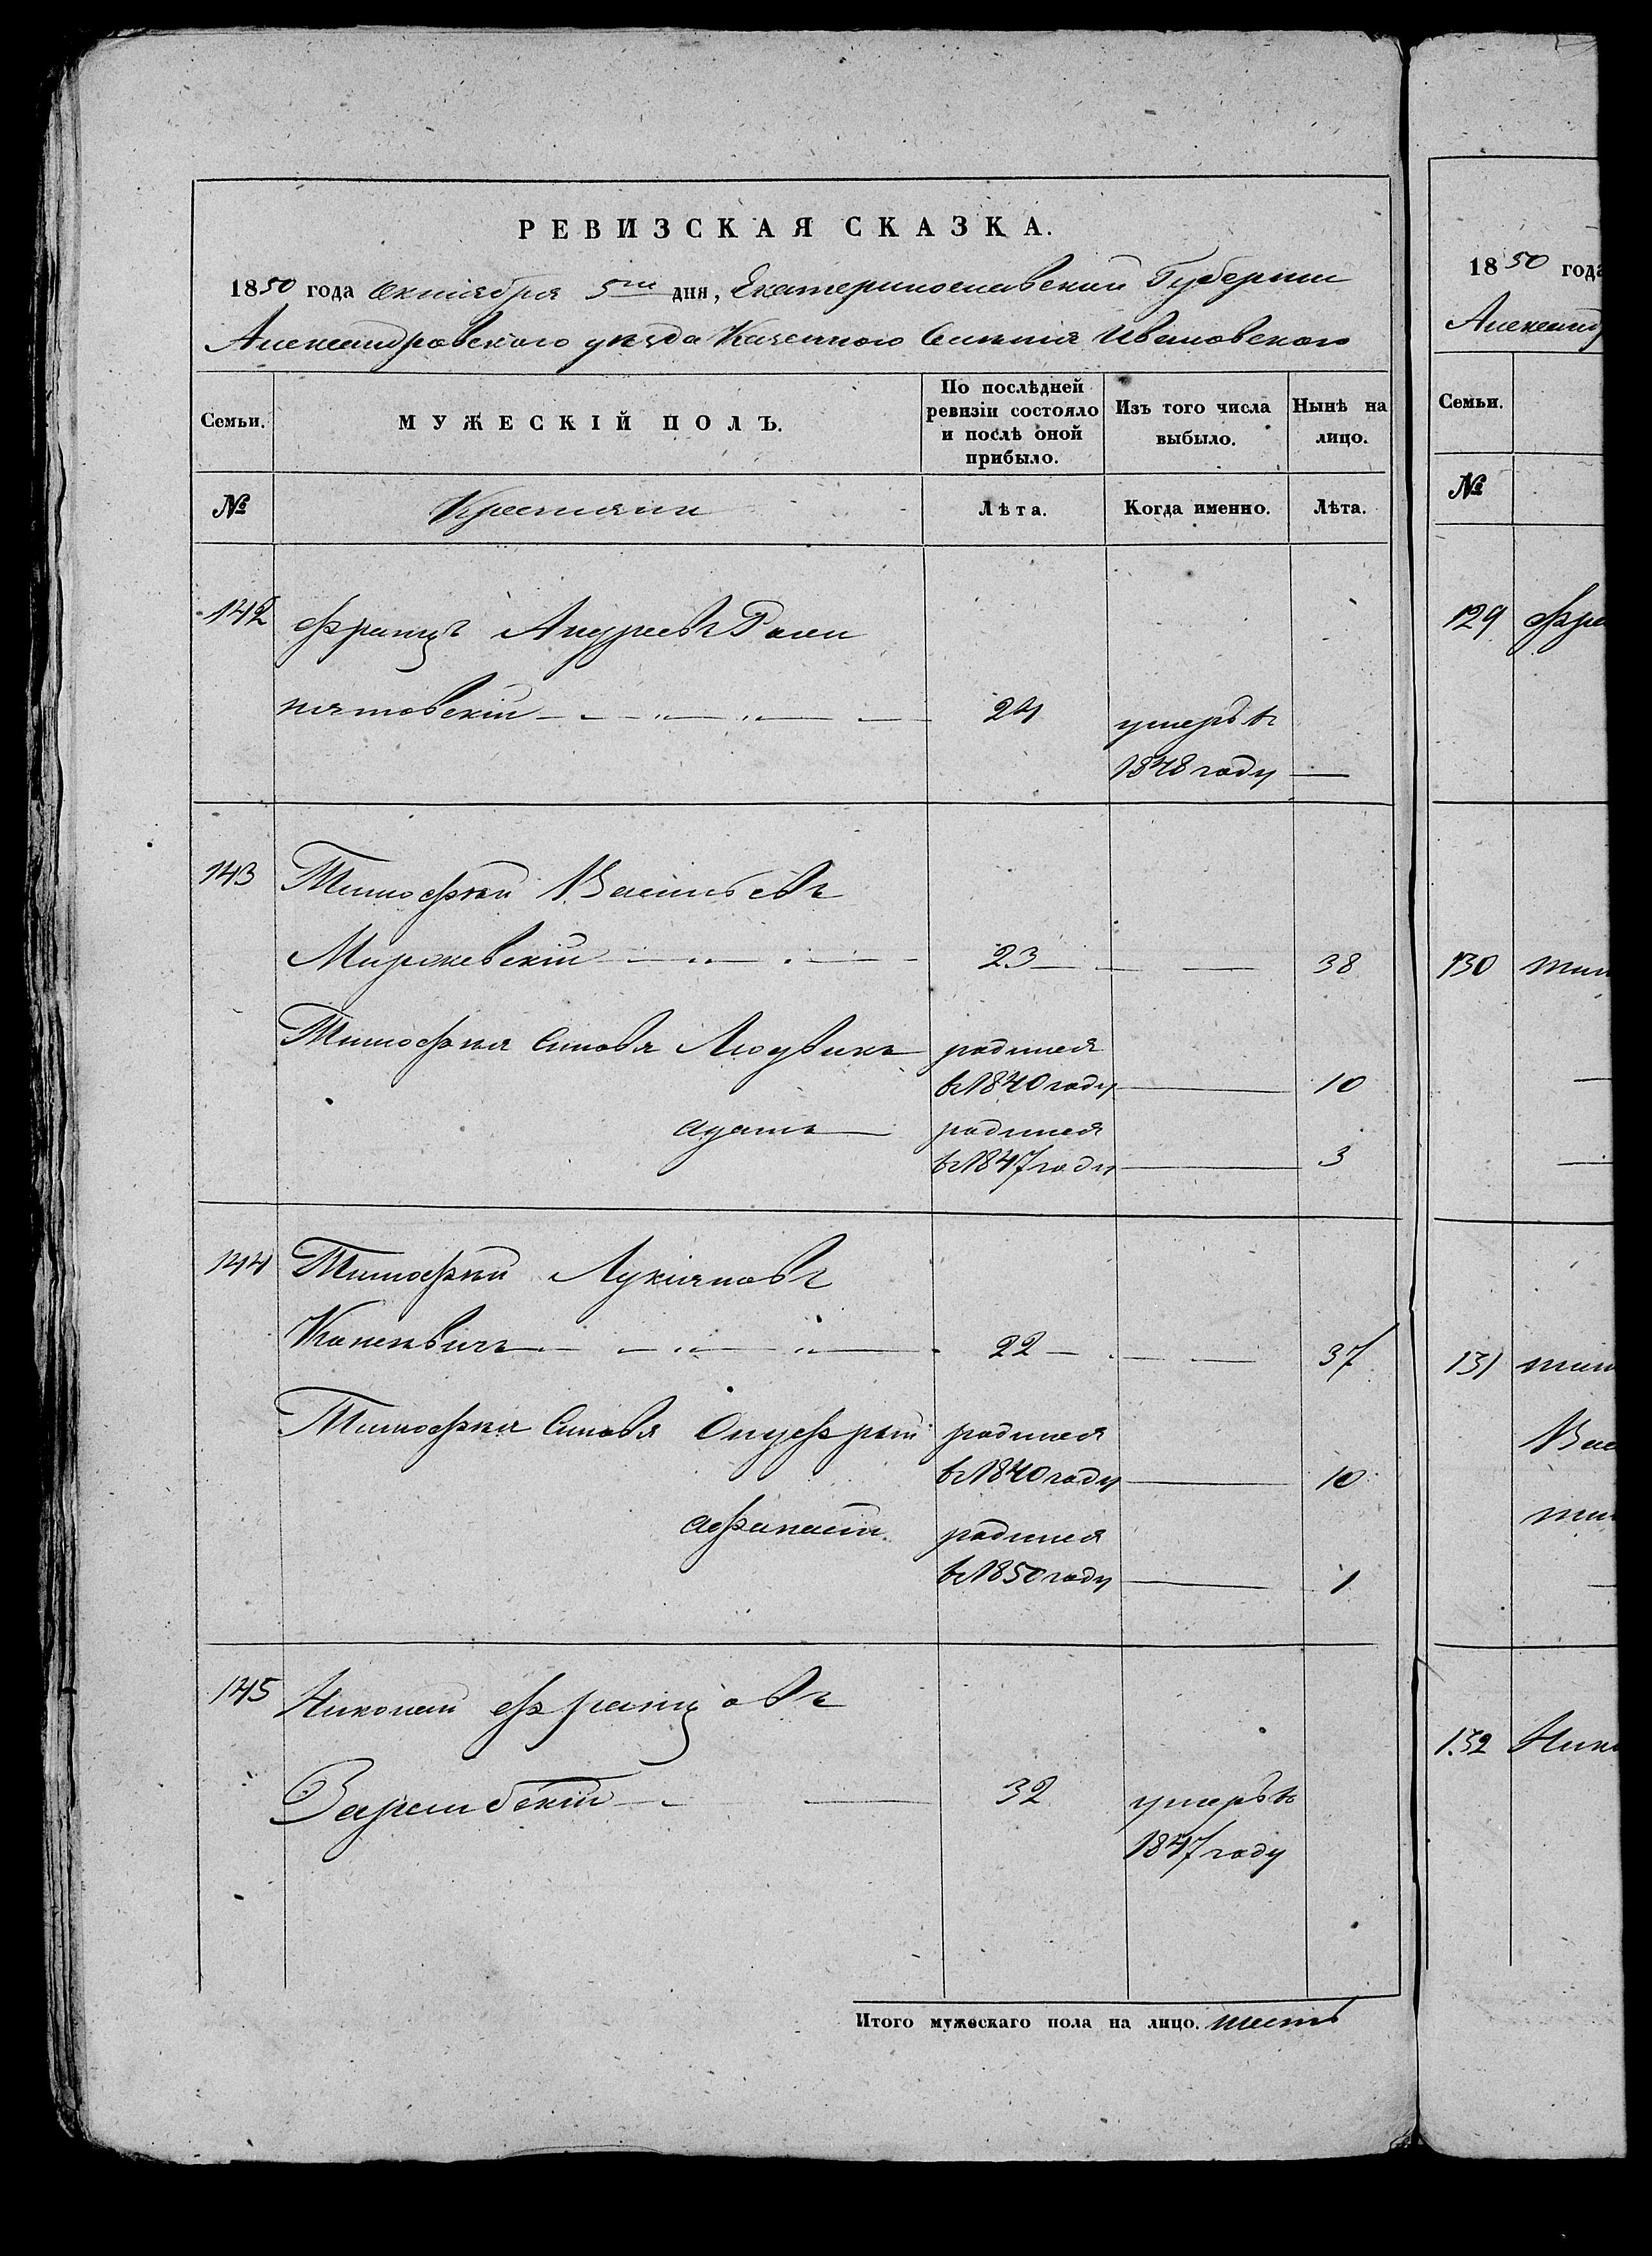 РЕВИЗСКАЯ СКАЗКА.
1850 года Октября 5го дня, Екатеринославской Губернии
Александровского уезда Казенного Селения Ивановского
Семьи.
МУЖЕСКІЙ ПОЛЪ.
По послѣдней
ревизіи состояло
и послѣ оной
прибыло.
Изъ того числа
выбыло.
Нынѣ на
лицо.
№
Крестьяни
Лѣта.
Когда именно.
Лѣта.
142 Францъ Андреевъ
24 умеръ въ
1848 году —
143 Тимофѣй Васильевъ
23 38
Тимофѣя Сыновя Людвикъ родился
въ 1840 году 10
адамъ родился
въ 1847 году 3
144 Тимофѣй Лукіяновъ
22 37
Тимофѣя Сыновя Онуфрѣй родился
въ 1840 году 10
афанасій родился
въ 1850 году 1
145 Николай Францовъ
Зарембскій 32 умеръ въ
1847 году
Итого мужескаго пола на лицо. шесть
1850 года
Александ
Семьи.
№
129 Фра
130 тим
131 тим
Вас
тим
132 Нико